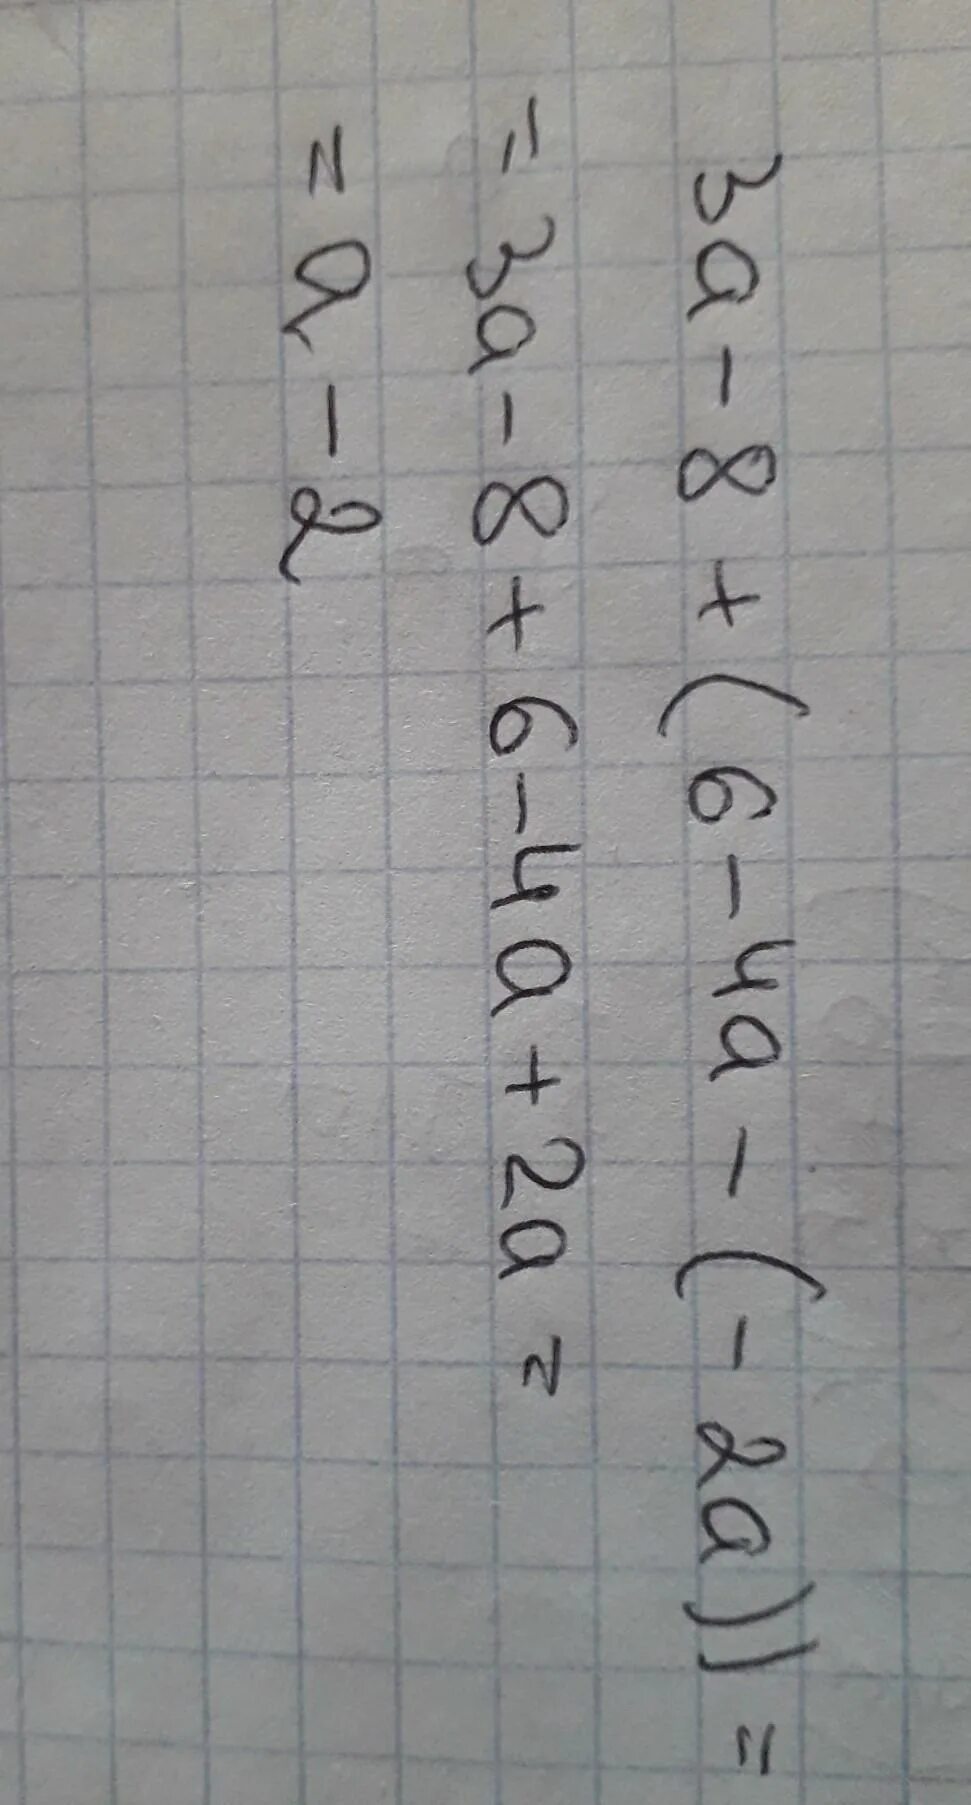 3a - 8 + (6 - 4a - (- 2a)) =
= 3a - 8 + 6 - 4a + 2a =
= a - 2